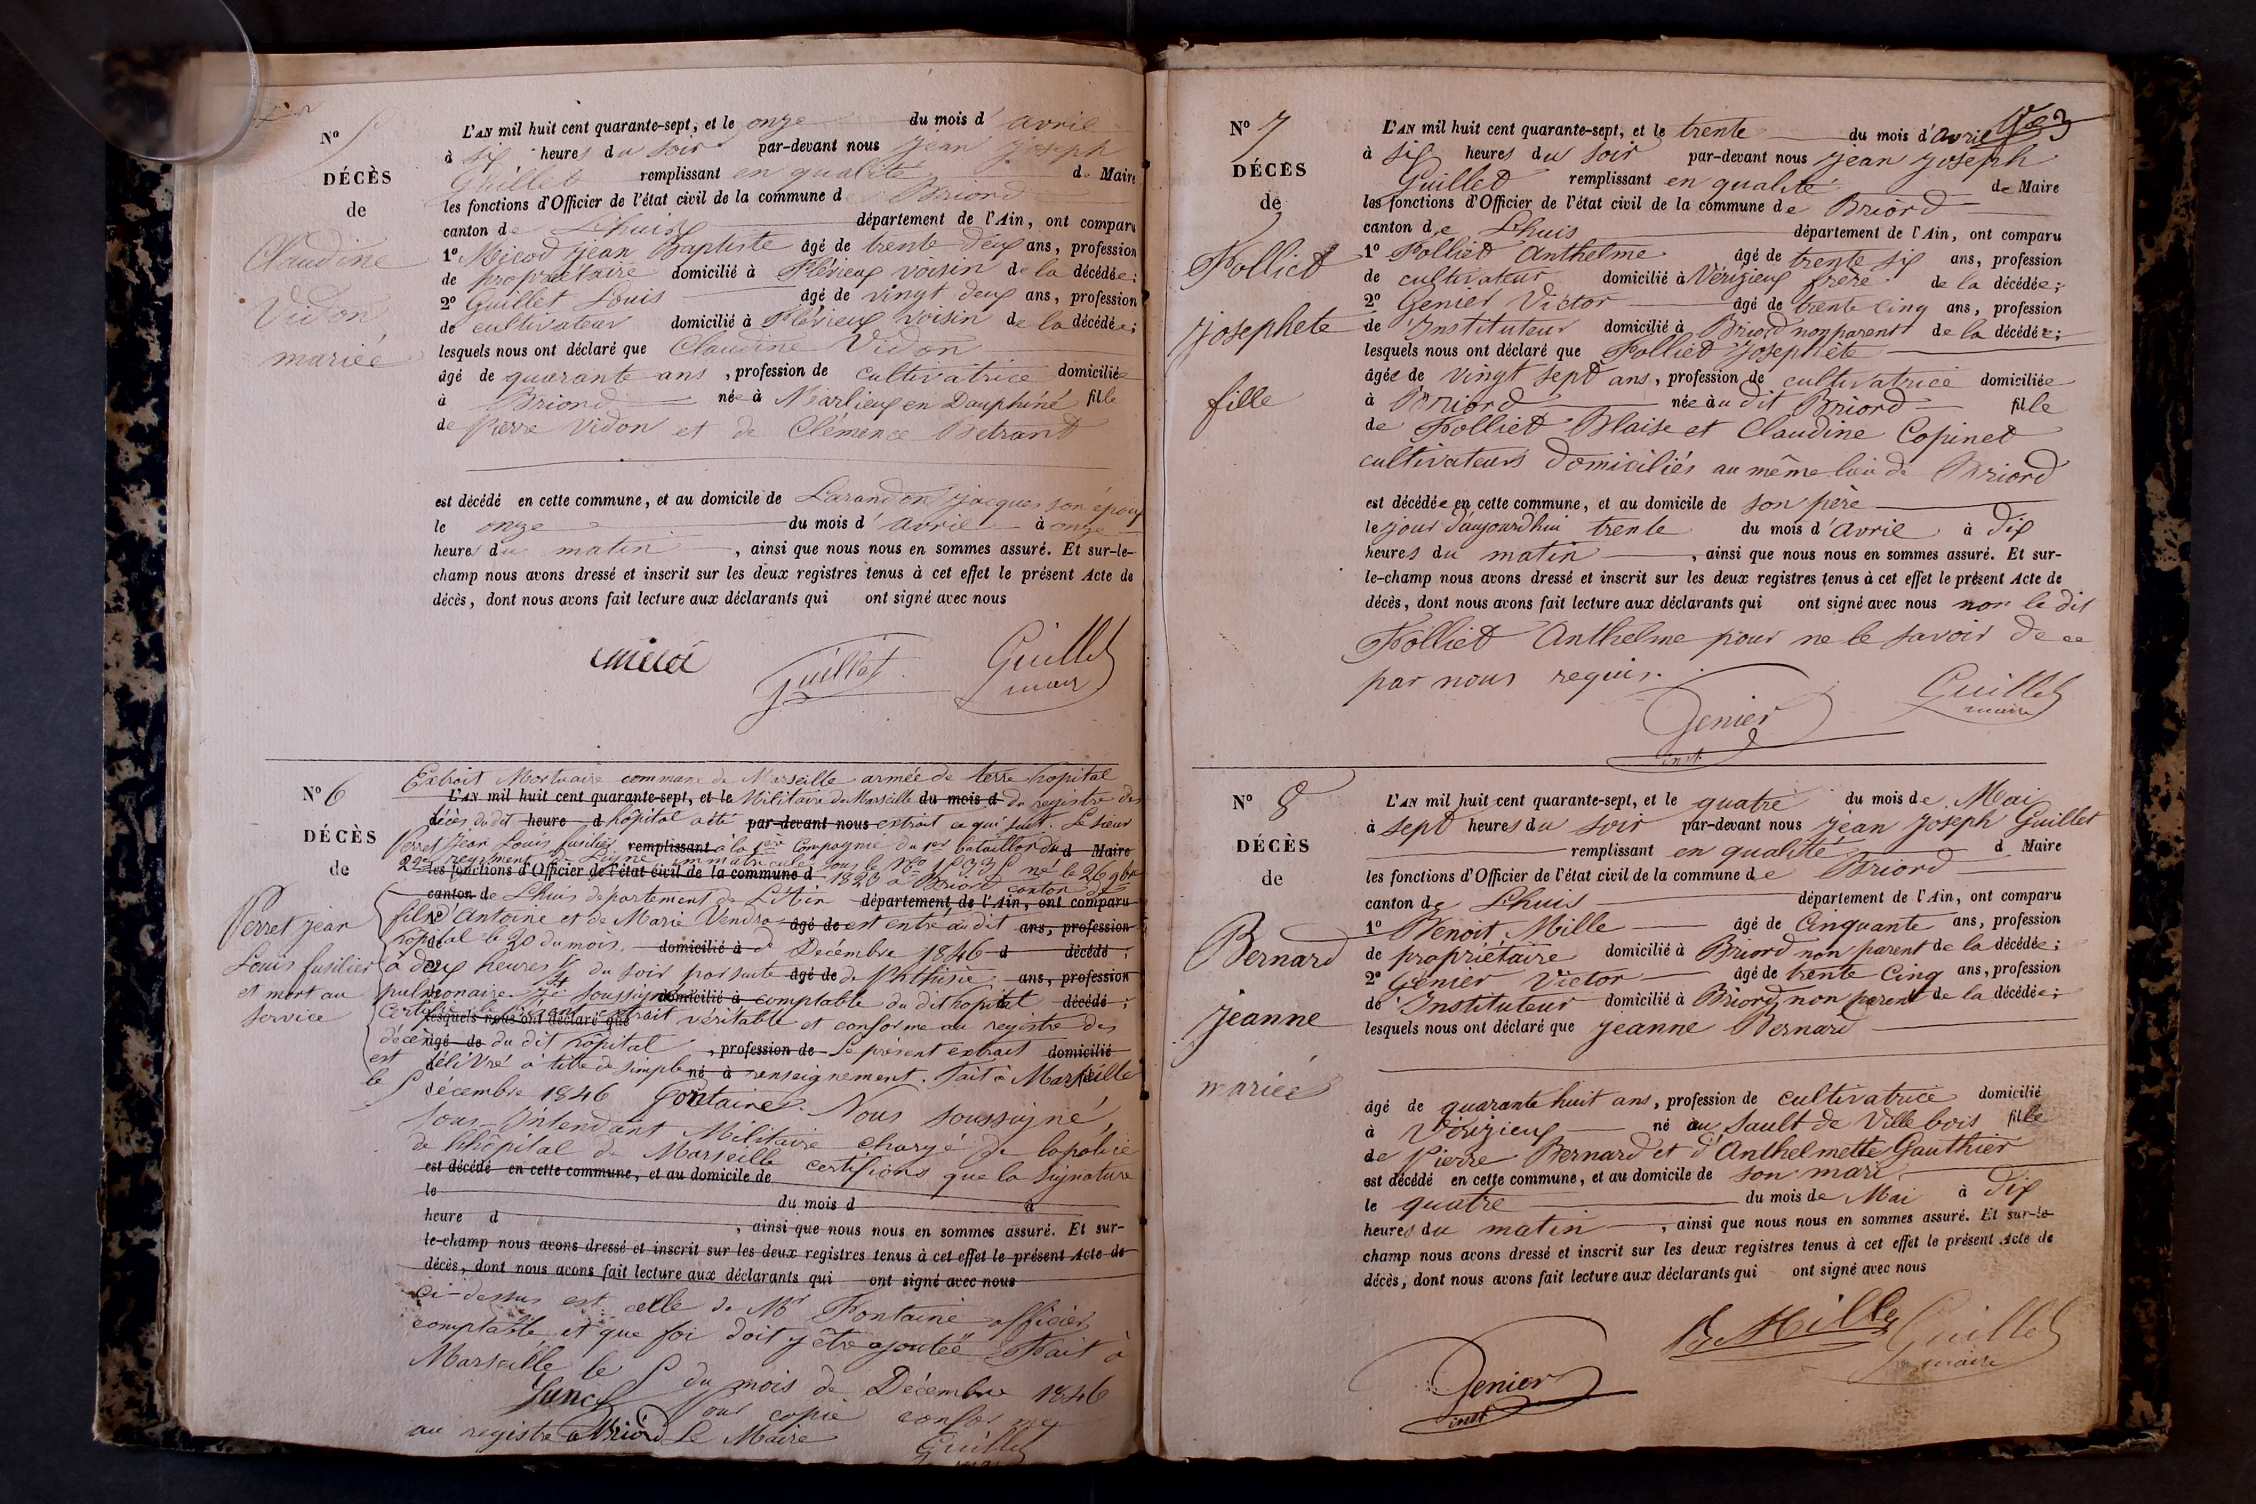 No 5
DÉCÈS
de
Claudine
Vidon
mariée
L'AN mil huit cent quarante-sept, et le onze du mois d'avril
à six heures du soir par-devant nous Jean Joseph
Guillet remplissant en qualité de Maire
les fonctions d'Officier de l'état civil de la commune d Briord
canton de Lhuis département de l'Ain, ont comparu
1° Micod Jean Baptiste âgé de trente deux ans, profession
de propriétaire domicilié à Flévieux voisin de la décédée;
2° Guillet Louis âgé de vingt deux ans, profession
de cultivateur domicilié à Flévieux voisin de la décédée;
lesquels nous ont déclaré que Claudine Vidon
âgé de quarante ans, profession de cultivatrice domiciliée
à Briord née à Marlieux en Dauphiné fille
de Pierre Vidon et de Clémence Betrand
est décédé en cette commune, et au domicile de Larandon Jacques son époux
le onze du mois d'avril à onze
heures du matin, ainsi que nous nous en sommes assuré. Et sur-le-
champ nous avons dressé et inscrit sur les deux registres tenus à cet effet le présent Acte de
décès, dont nous avons fait lecture aux déclarants qui ont signé avec nous
Guillet Guillet
maire
No 6
DÉCÈS
de
Perret jean
Louis fusilier
et mort au
service
Extrait Mortuaire commune de Marseille armée de terre hopital
L'AN mil huit cent quarante-sept, et le Militaire de Marseille du mois d du registre des
décès dudit heure d hôpital a été par-devant nous extrait ce qui suit. Le sieur
Perret Jean Louis fusilier remplissant à la 1ère Compagnie du 1er bataillon du d Maire
22e régiment de Ligne immatriculé sous le No né le 26 9bre
les fonctions d'Officier de l'état civil de la commune d 1823 à Briord canton de
canton de Lhuis departement de L'Ain département de l'Ain, ont comparu
fils d'Antoine et de Marie Vendra âgé de est entré audit ans, profession
hôpital le 20 du mois domicilié à de Décembre 1846 d décédé;
à deux heures du soir par suite âgé de de Phthisie ans, profession
pulmonaire Je soussigné domicilié à comptable du dit hopital décédé;
Certifie le présent lesquels nous ont déclaré que extrait véritable et conforme au registre des
décès âgé de du dit hopital, profession de Le présent extrait domicilié
est délivré à titre de simple né à renseignement. Fait à Marseille
le 5 décembre 1846 Fontaine. Nous soussigné,
sous-Intendant Militaire chargé de la police
de l'hôpital de Marseille certifions que la signature
est décédé en cette commune, et au domicile de
le du mois d à
heure d, ainsi que nous nous en sommes assuré. Et sur-
le-champ nous avons dressé et inscrit sur les deux registres tenus à cet effet le présent Acte de
décès, dont nous avons fait lecture aux déclarants qui ont signé avec nous
ci-dessus est celle de Mr Fontaine officier
comptable et que foi doit y être ajoutée Fait à
Marseille le 5 du mois de Décembre 1846
Pour copie conforme
au registre à Briord Le Maire
Guillet
No 7
DÉCÈS
de
Folliet
josephete
fille
L'AN mil huit cent quarante-sept, et le trente du mois d'avril
à six heures du soir par-devant nous jean joseph
Guillet remplissant en qualité de Maire
les fonctions d'Officier de l'état civil de la commune de Briord
canton de Lhuis département de l'Ain, ont comparu
1° Folliet Anthelme âgé de trente six ans, profession
de cultivateur domicilié à Vérizieux frère de la décédée;
2° Genier Victor âgé de trente cinq ans, profession
de Instituteur domicilié à Briord non parent de la décédée;
lesquels nous ont déclaré que Folliet Josephete
âgée de vingt sept ans, profession de cultivatrice domiciliée
à Briord née au dit Briord fille
de Folliet Blaise et Claudine Copinet
cultivateurs domiciliés au même lieu de Briord
est décédée en cette commune, et au domicile de son père
le jour d'aujourdhui trente du mois d'avril à dix
heures du matin, ainsi que nous nous en sommes assuré. Et sur-
le-champ nous avons dressé et inscrit sur les deux registres tenus à cet effet le présent Acte de
décès, dont nous avons fait lecture aux déclarants qui ont signé avec nous non le dit
Folliet Anthelme pour ne le savoir de ce
par nous requis.
Genier Guillet
inst maire
No 8
DÉCÈS
de
Bernard
jeanne
mariée
L'AN mil huit cent quarante-sept, et le quatre du mois de Mai
à sept heures du soir par-devant nous jean joseph Guillet
remplissant en qualité d Maire
les fonctions d'Officier de l'état civil de la commune de Briord
canton de Lhuis département de l'Ain, ont comparu
1° Benoit Mille âgé de Cinquante ans, profession
de propriétaire domicilié à Briord non parent de la décédée;
2° Génier Victor âgé de trente cinq ans, profession
de Instituteur domicilié à Briord, non parent de la décédée;
lesquels nous ont déclaré que jeanne Bernard
âgé de quarante huit ans, profession de cultivatrice domicilié
à Vérizieux né au Sault de Villebois fille
de Pierre Bernard et d'Anthelmette Gauthier
est décédé en cette commune, et au domicile de son mari
le quatre du mois de Mai à dix
heures du matin, ainsi que nous nous en sommes assuré. Et sur-le-
champ nous avons dressé et inscrit sur les deux registres tenus à cet effet le présent Acte de
décès, dont nous avons fait lecture aux déclarants qui ont signé avec nous
Be Mille Guillet
maire
Genier
inst